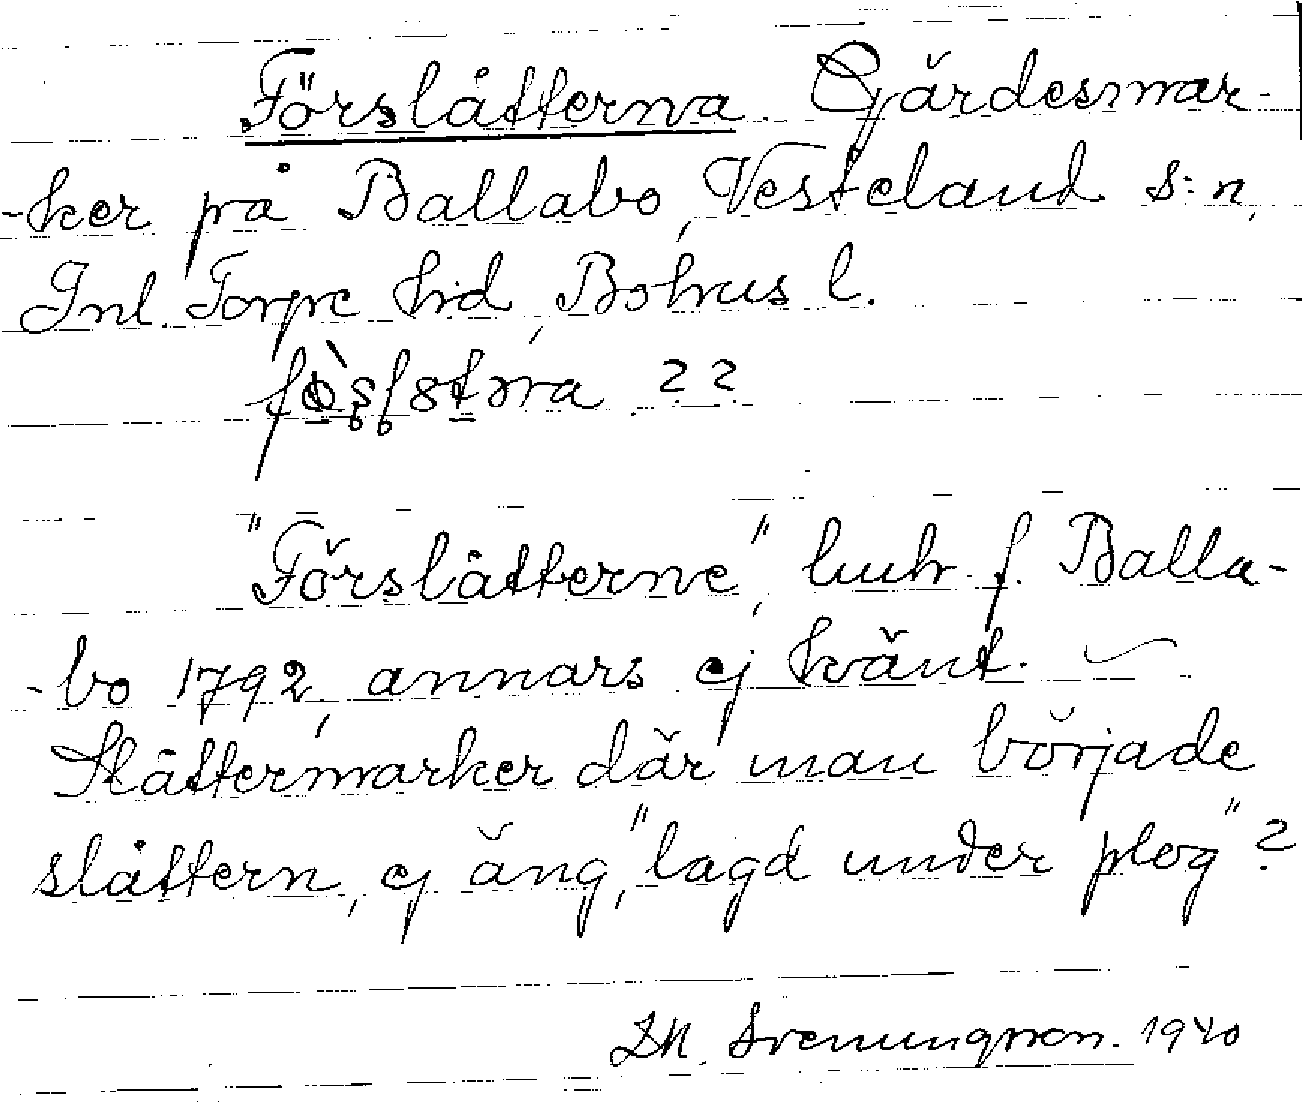 Förslåtterna. Gärdesmar-
-ker på Ballabo, Vesteland s:n,
Inl. Torpe hrd, Bohus l.
??
"Förslåtterne", luhr f. Balla-
-bo 1792, annars ej känt.
Slåttermarker där man började
slåttern, ej äng, "lagd under plog"?
Svenungsson. 1940